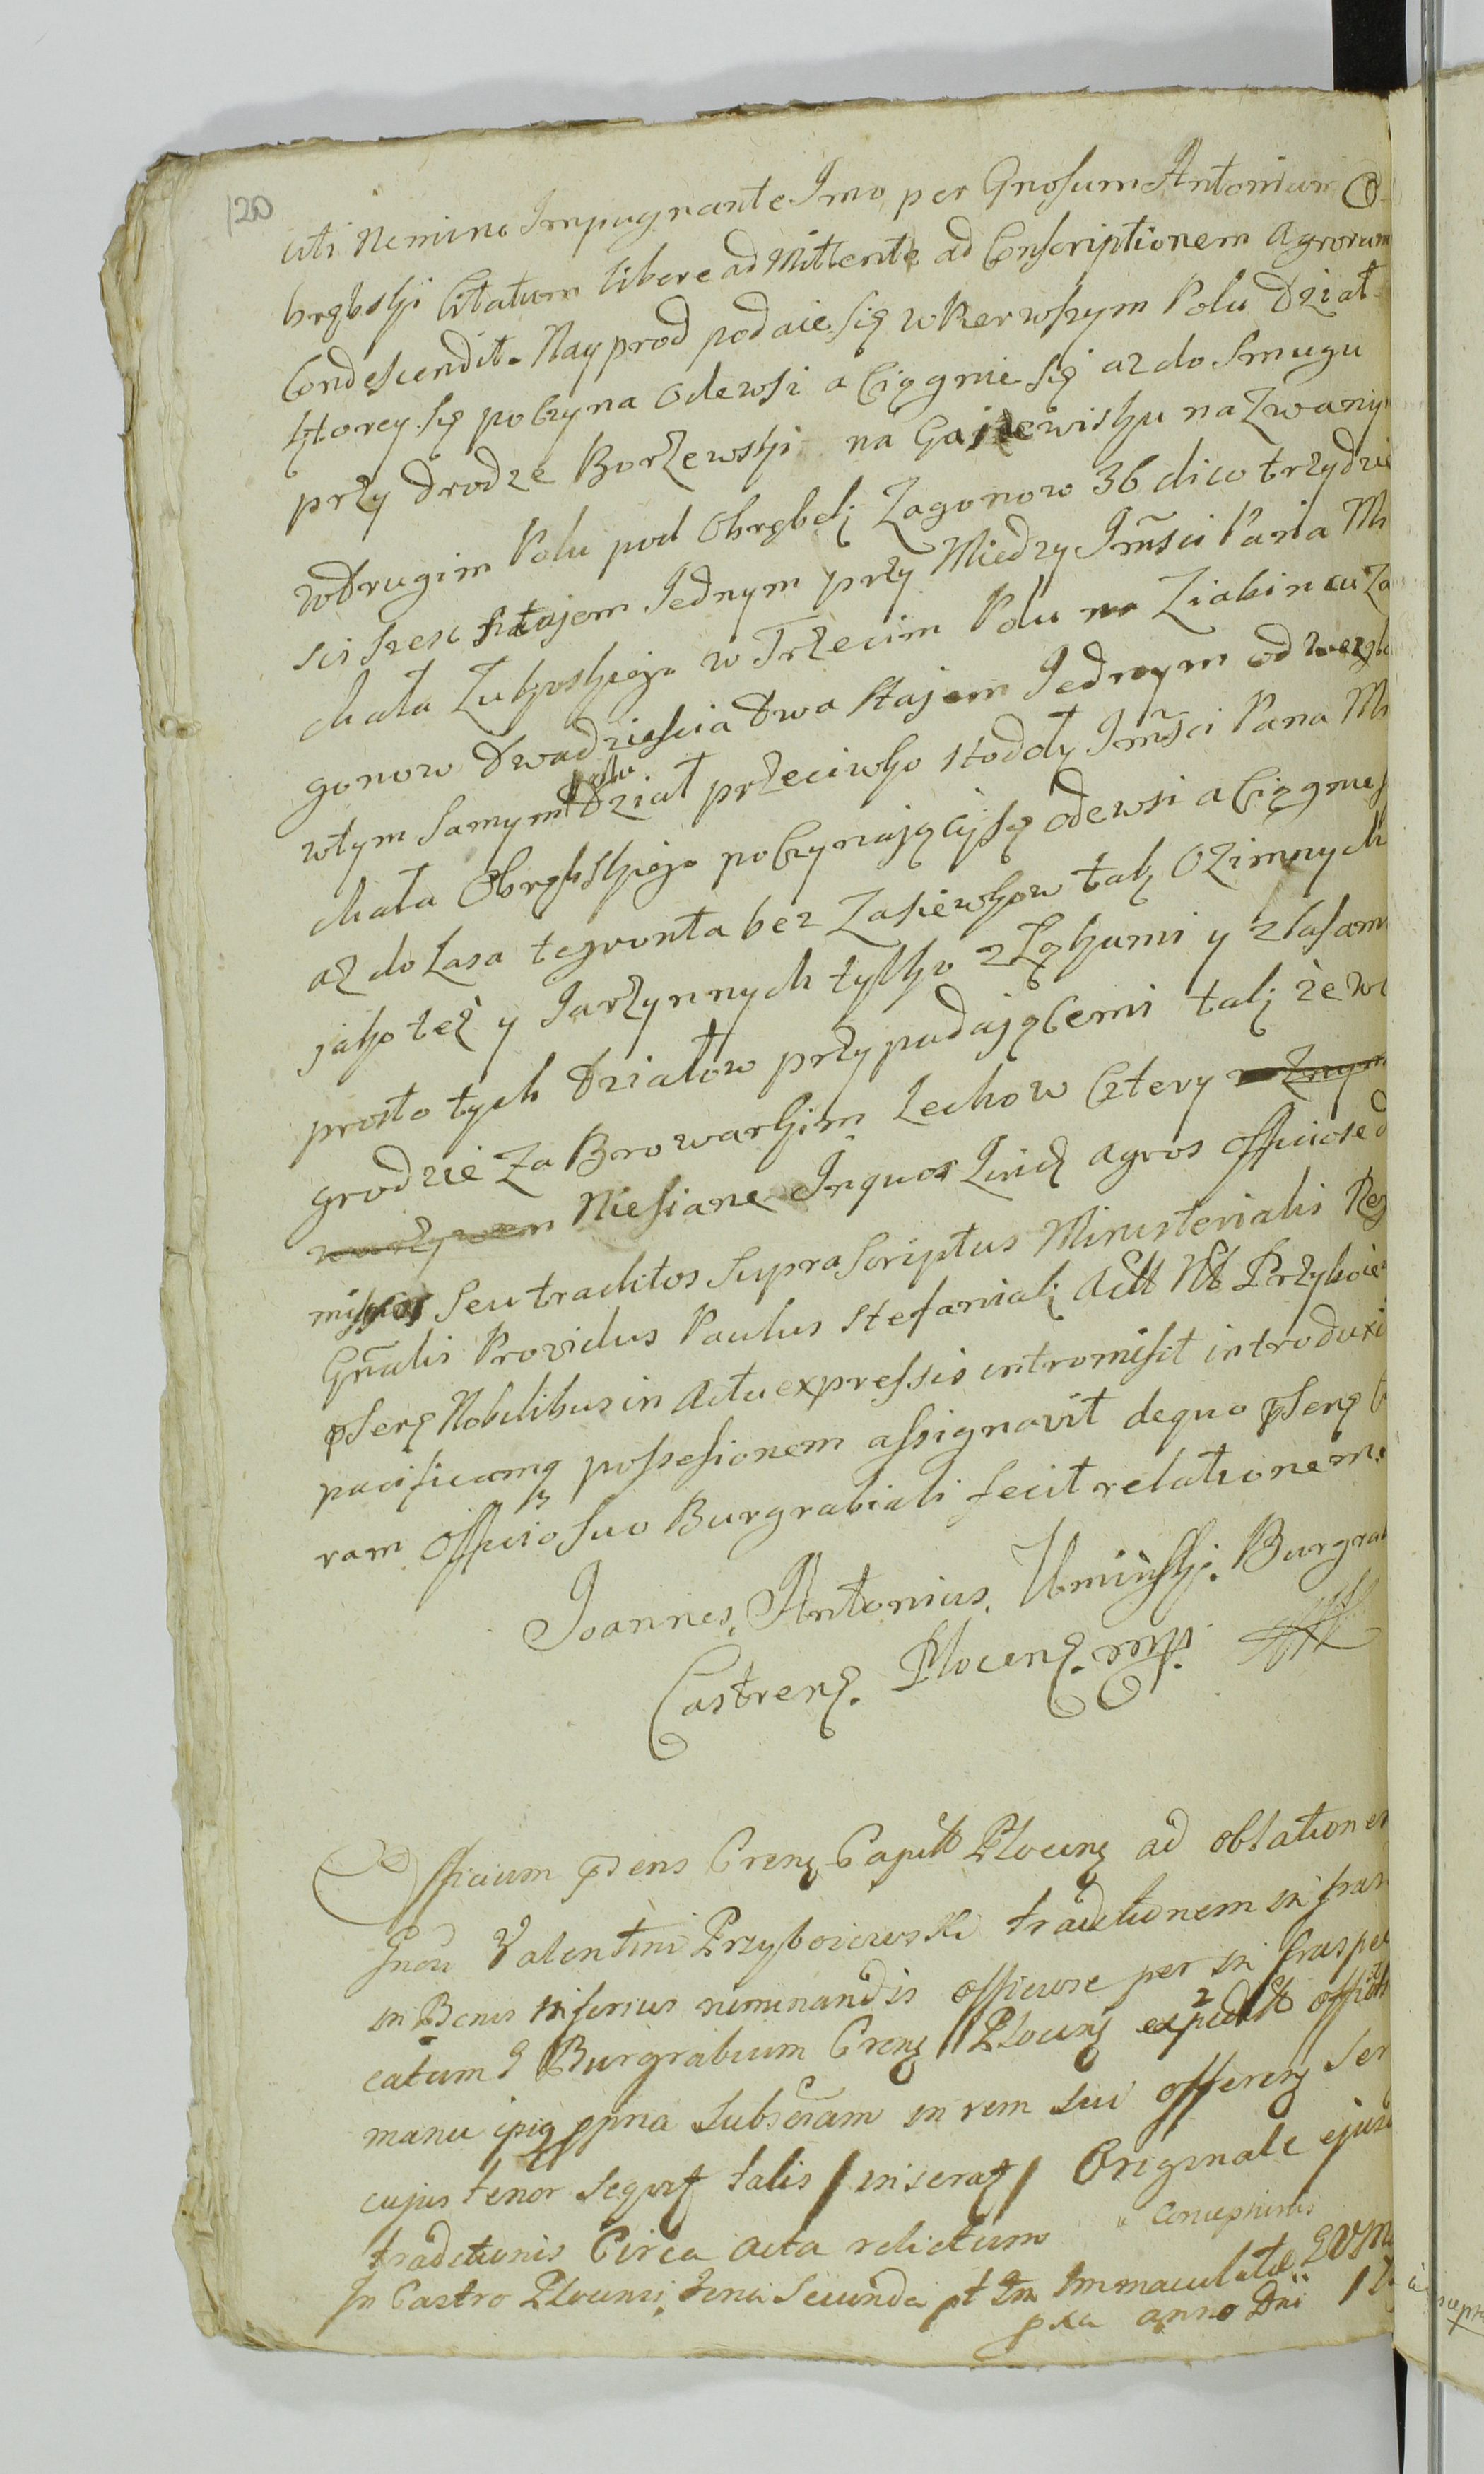 120
uti Nemine Impugnante Imo per Gnosum Antonium O-
brębski Citatum libere ad Mittente ad Conscriptionem Agrorum
Condescendit. Nayprod podaie się w Pierwszym Polu Dział
ktorey się poczyna Odewsi a Ciągnie się az do Smugu
przy drodze Borzewski na Gajewisku nazwany
w drugim Polu pod Obrębek Zagonow 36 dico trzydzie
sci szesc stajem Jednym przy Miedzy Jmsci Pana Mi
chała Zukoskiego w Trzecim Polu na Ziabincu Za
gonow dwadziescia Dwa Stajem Jednym od
w tym Samym Dział przeciwko stodoły Jmsci Pana Mi
chała Obrębskiego poczynający się odewsi a Ciągnie
az do Lasa te grunta bez Zasiewkow tak Ozimnych
jako tez y Jarzynnych tylko z Łąkami y z lasami
prosto tych Działow przypadającemi tak ze w
grodzie za Browarkiem Lechow Cztery
Niesiane Inquos agros officiose d
missos seu traditos Supra Scriptus Ministerialis Reg
Gnalis Providus Paulus Stefaniak Actt Nobb Przyboie
pserę Nobilibus in Actu expressis intromisit introduxi
pacificamq possesionem assignavit dequo pserę
ram Officio suo Burgrabiali fecit relationem.
Joannes, Antonius, Uminski. Burgrab
Castrenę. Plocenę. mp.
Officium psens Crenę Capitt Plocenę ad oblationem
Gnosi Valentini Przyboiewski traditionem in fras
in Bonis inferius nominandis officiose per in fraspe
catum G Burgrabium Crenę Plocenę expeditt offi
manu ipiq ppria Subscram in rem sui offerenę Ser
cujus tenor sequitę talis / inseratę / Originale ejus
traditionis Circa acta relictum
Conceptionis
In Castro Plocensi, feria Secunda pt Im Immaculatæ BVM
pxa anno Dni 17